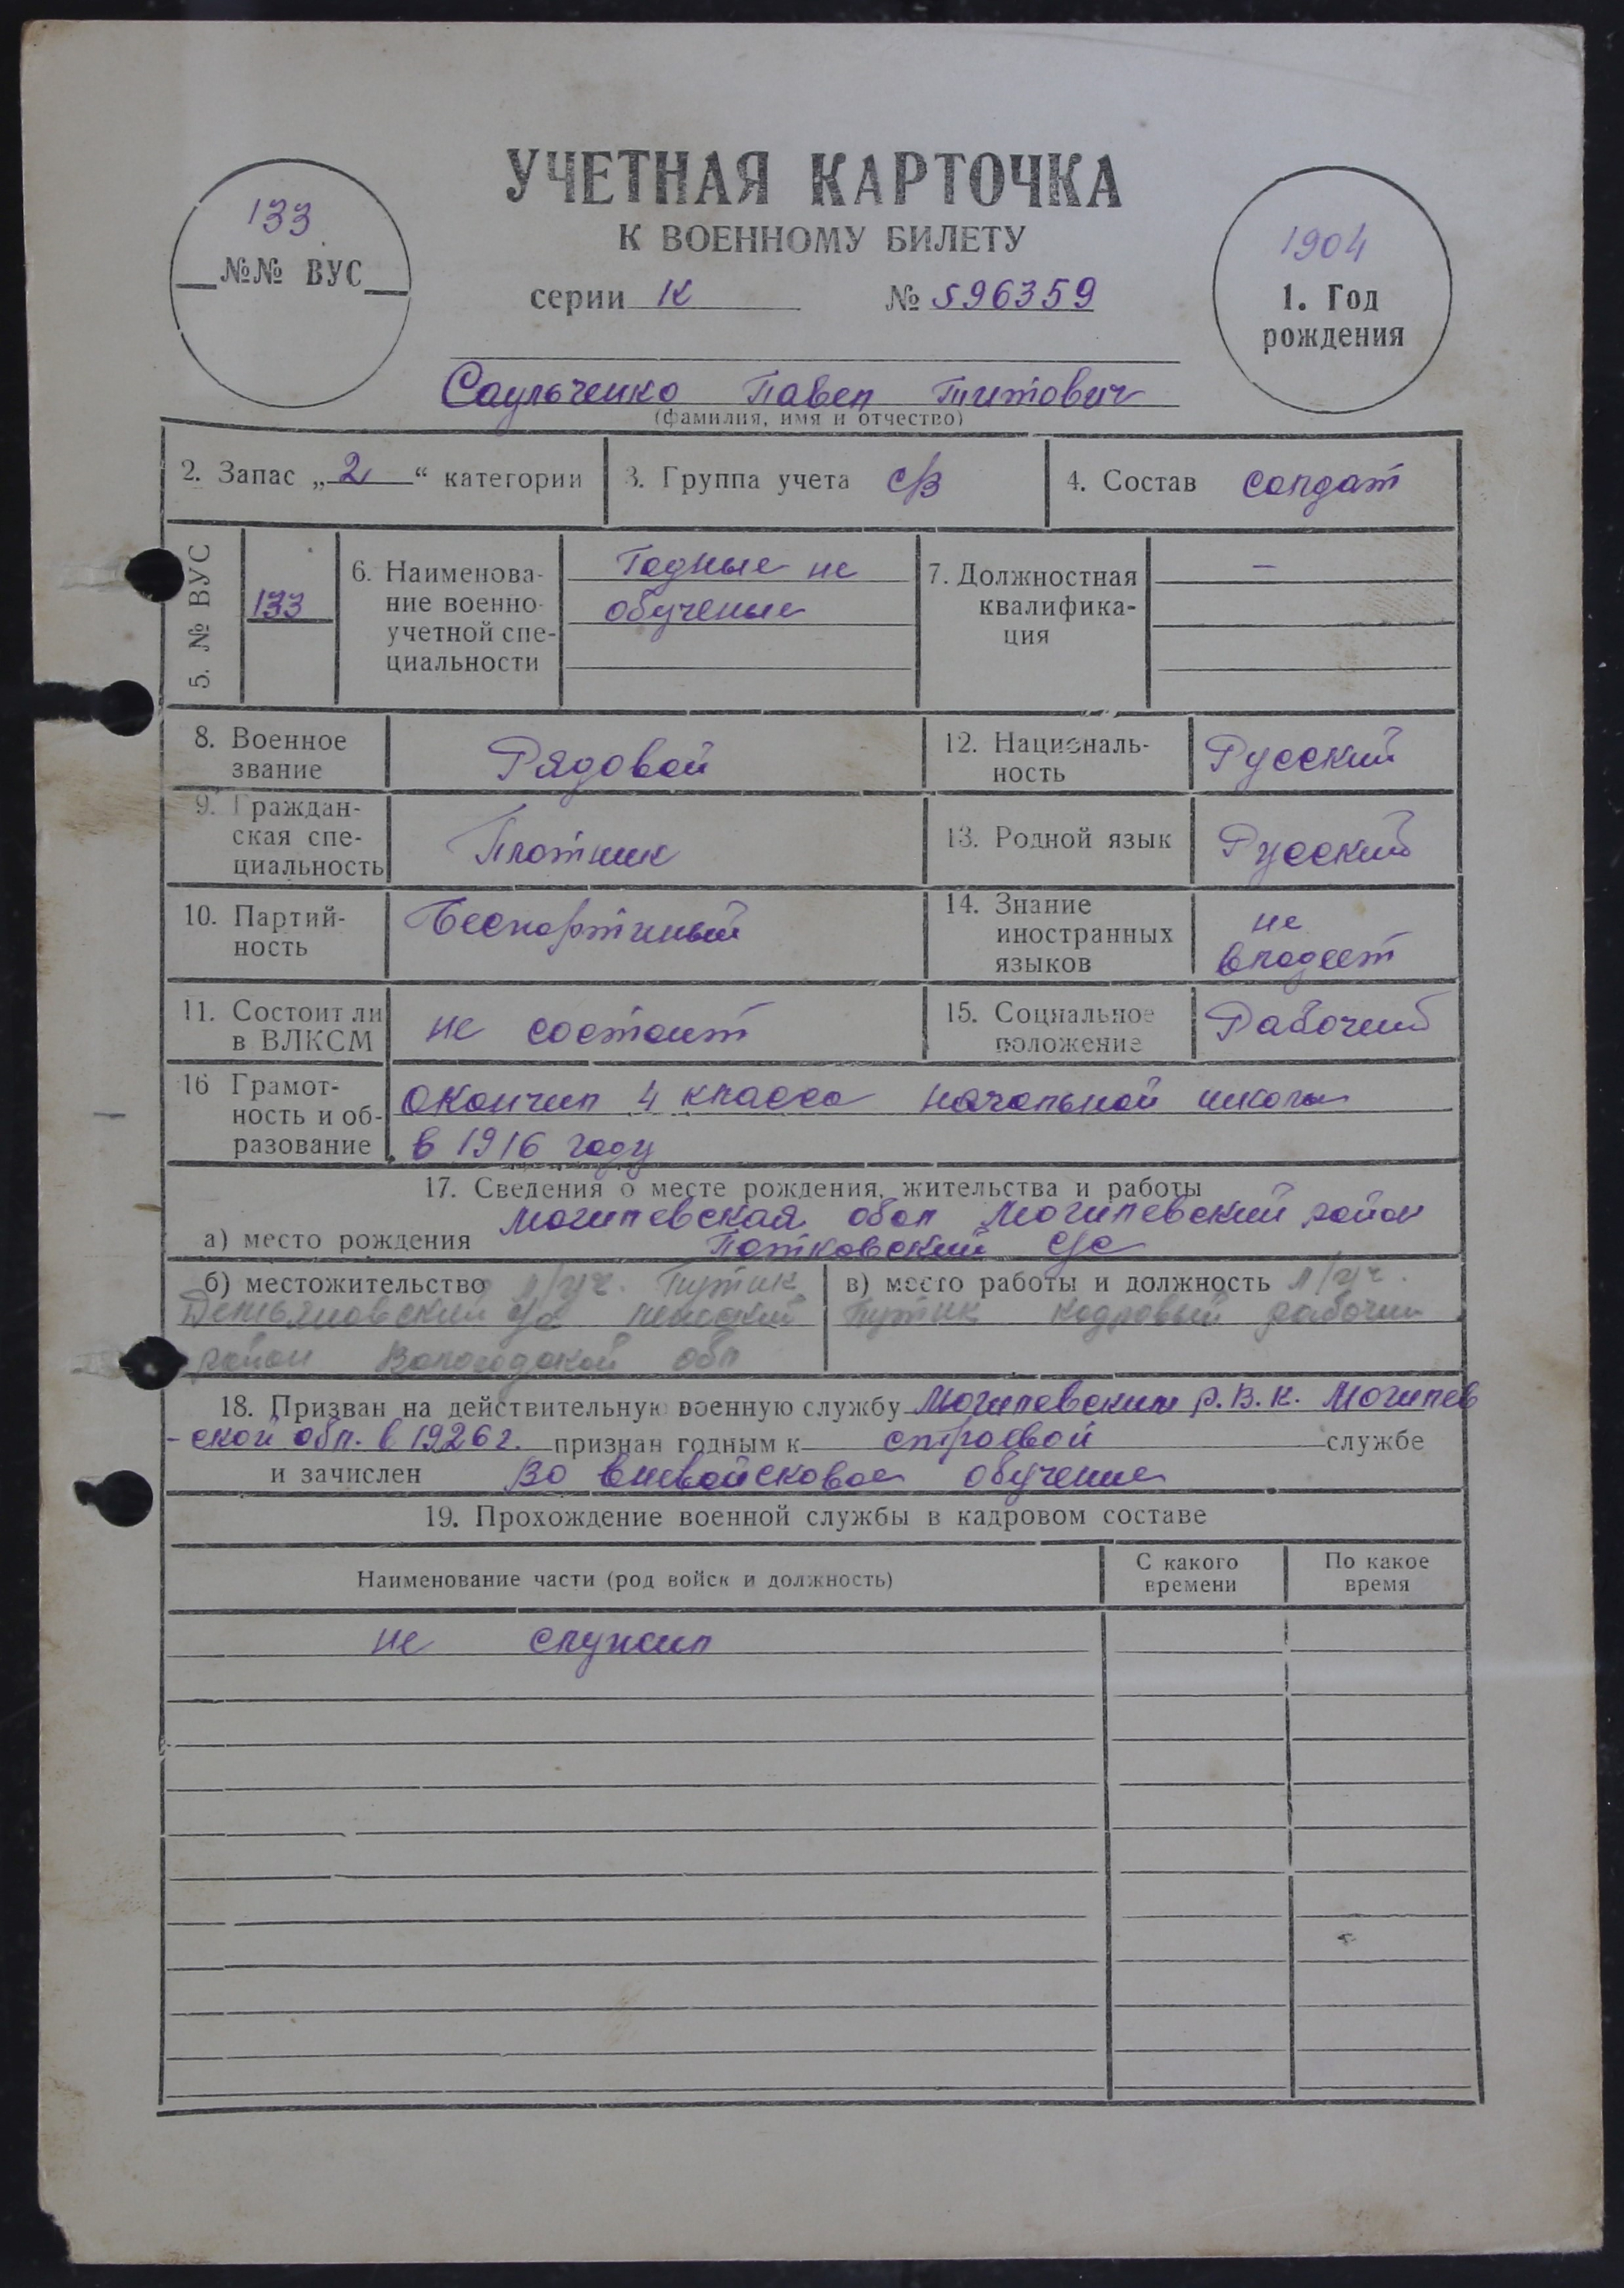 УЧЕТНАЯ КАРТОЧКА
К ВОЕННОМУ БИЛЕТУ
серии К № 596359
133
№№ ВУС
1904
1. Год
рождения
Саульченко Павел Титович
(фамилия, имя и отчество)
2. Запас „2“ категории
3. Группа учета с/в
4. Состав солдат
5. № ВУС
133
6. Наименова-
ние военно-
учетной спе-
циальности
Годные не
обученые
7. Должностная
квалифика-
ция
—
8. Военное
звание
Рядовой
12. Националь-
ность
Русский
9. Граждан-
ская спе-
циальность
Плотник
13. Родной язык
Русский
10. Партий-
ность
Беспартиный
14. Знание
иностранных
языков
не
владеет
11. Состоит ли
в ВЛКСМ
не состоит
15. Социальное
положение
Рабочий
16 Грамот-
ность и об-
разование
окончил 4 класса начальной школы
в 1916 году
17. Сведения о месте рождения, жительства и работы
Могилевская обл Могилевский район
а) место рождения
с/с
б) местожительство л/уч. Путик
с/с
район Вологодской обл
в) место работы и должность л/уч.
Путик кадровый рабочий
18. Призван на действительную военную службу Могилевским р.В.К. Могилев
-ской обл. в 1926 г. признан годным к строевой службе
и зачислен во вневойсковое обучение
19. Прохождение военной службы в кадровом составе
Наименование части (род войск и должность)
С какого
времени
По какое
время
не служил